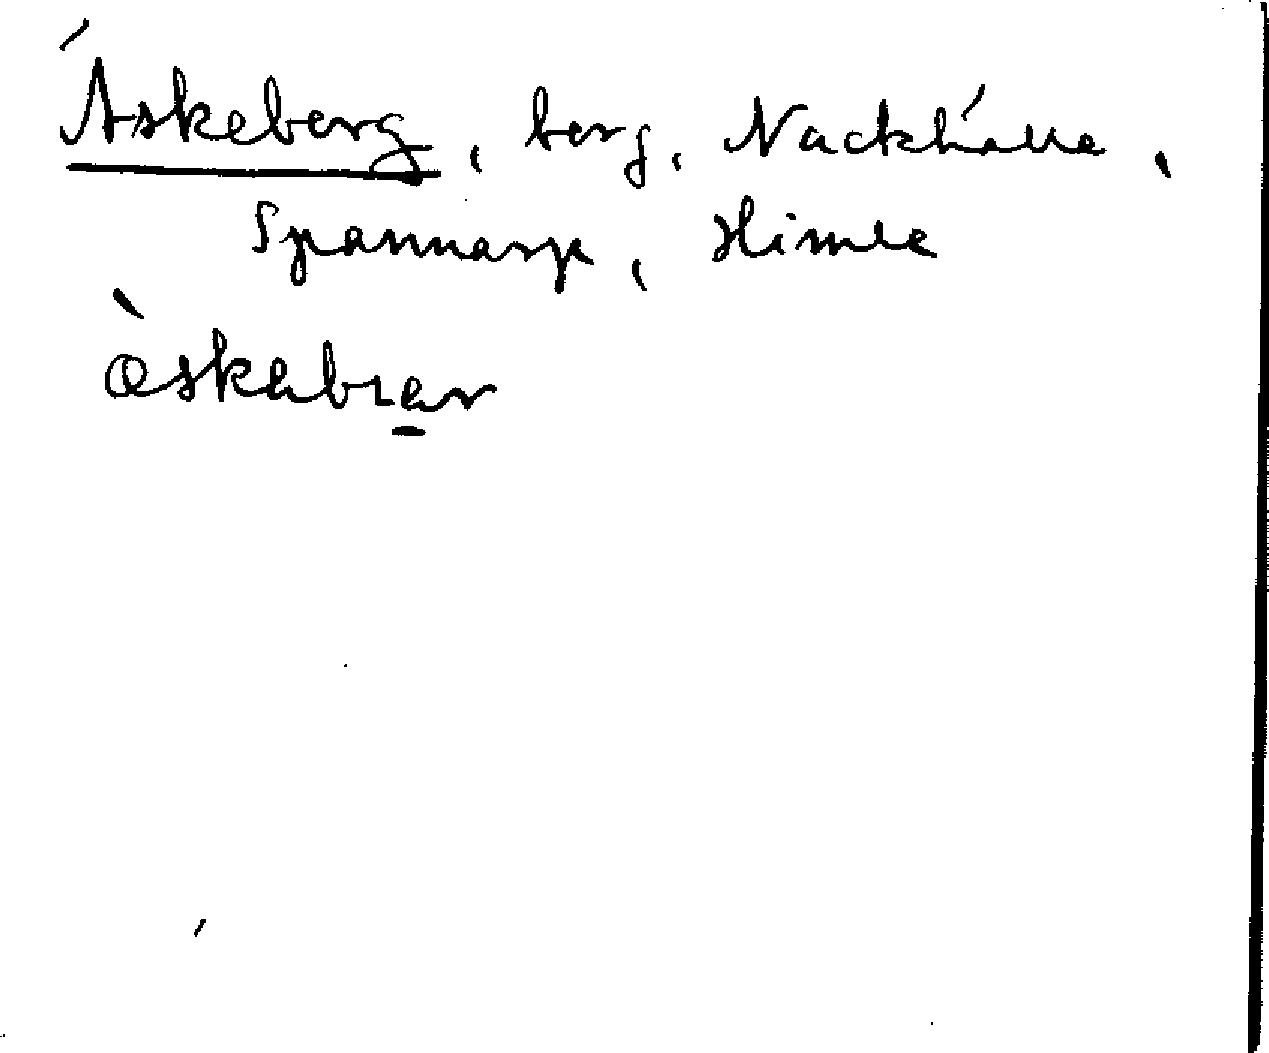 Äskeberg, berg, Nackhälle,
Spannarp, Himle
æ̀skabɪa̱r